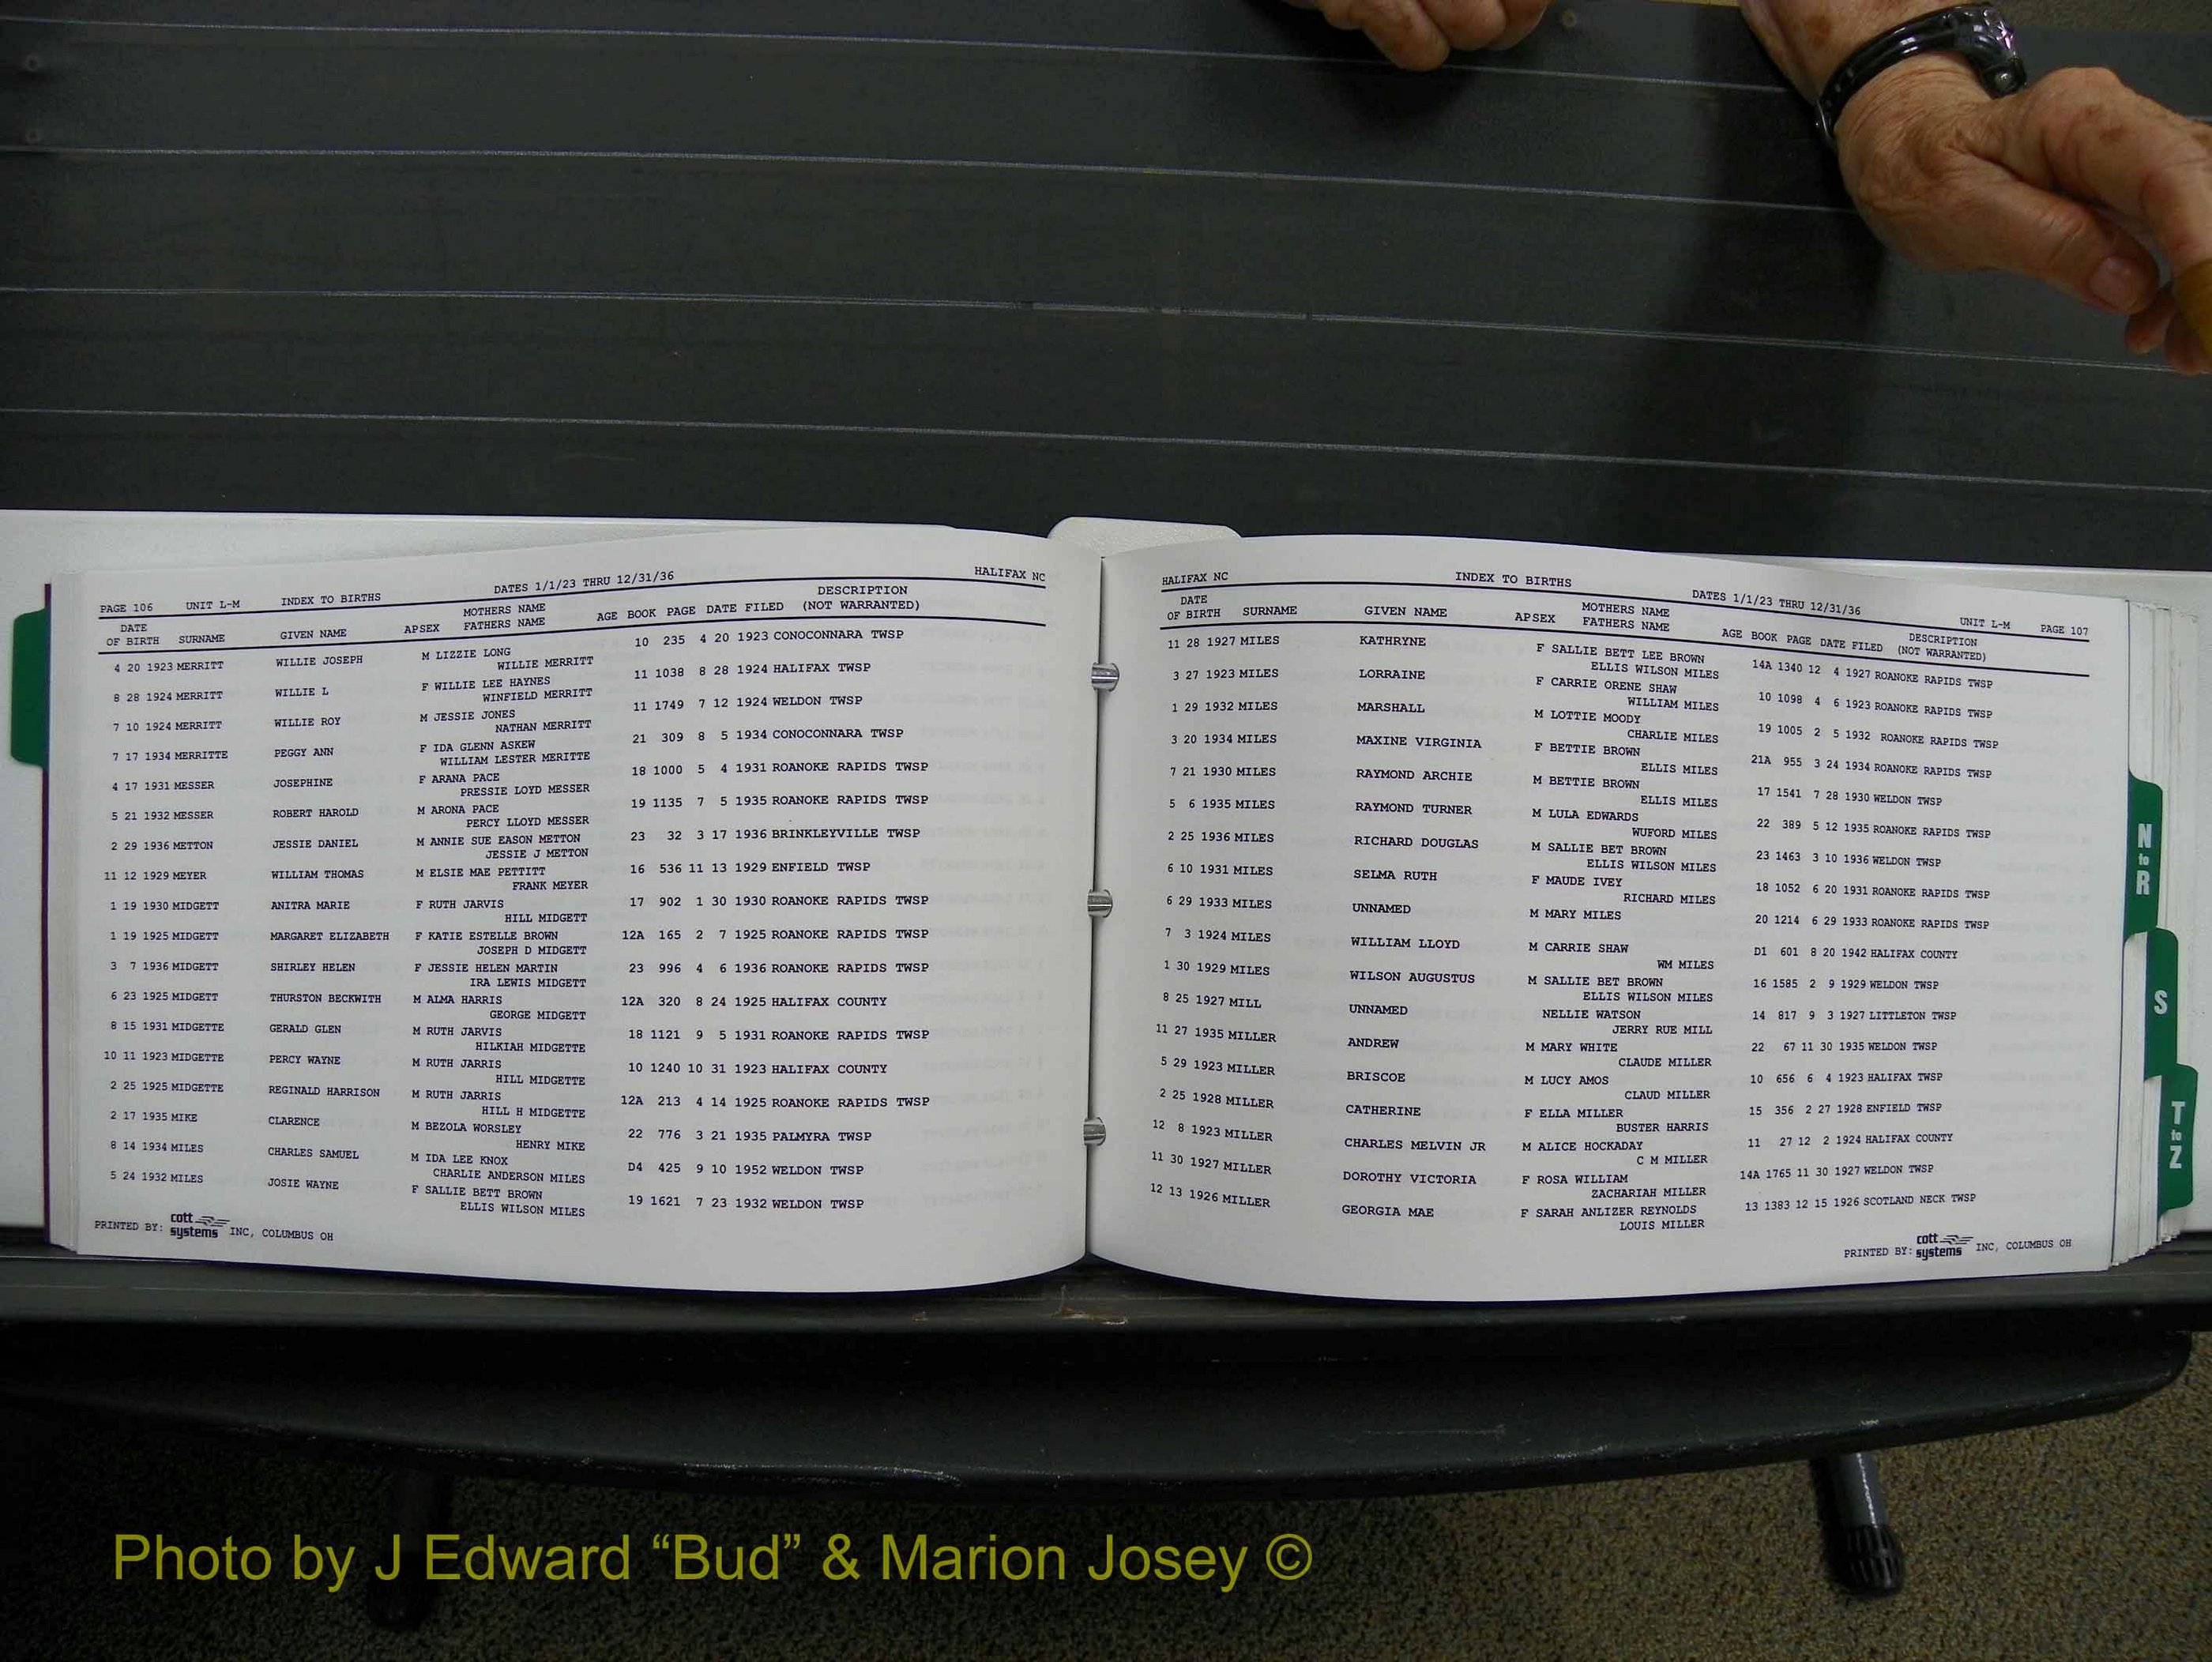 PAGE 106 UNIT L-M INDEX TO BIRTHS DATES 1/1/23 THRU 12/31/36 HALIFAX NC
DATE OF BIRTH SURNAME GIVEN NAME APSEX MOTHERS NAME FATHERS NAME AGE BOOK PAGE DATE FILED DESCRIPTION (NOT WARRANTED)
4 20 1923 MERRITT WILLIE JOSEPH M LIZZIE LONG 10 235 4 20 1923 CONOCONNARA TWSP
WILLIE MERRITT
8 28 1924 MERRITT WILLIE L F WILLIE LEE HAYNES 11 1038 8 28 1924 HALIFAX TWSP
WINFIELD MERRITT
7 10 1924 MERRITT WILLIE ROY M JESSIE JONES 11 1749 7 12 1924 WELDON TWSP
NATHAN MERRITT
7 17 1934 MERRITTE PEGGY ANN F IDA GLENN ASKEW 21 309 8 5 1934 CONOCONNARA TWSP
WILLIAM LESTER MERITTE
4 17 1931 MESSER JOSEPHINE F ARANA PACE 18 1000 5 4 1931 ROANOKE RAPIDS TWSP
PRESSIE LOYD MESSER
5 21 1932 MESSER ROBERT HAROLD M ARONA PACE 19 1135 7 5 1935 ROANOKE RAPIDS TWSP
PERCY LLOYD MESSER
2 29 1936 METTON JESSIE DANIEL M ANNIE SUE EASON METTON 23 32 3 17 1936 BRINKLEYVILLE TWSP
JESSIE J METTON
11 12 1929 MEYER WILLIAM THOMAS M ELSIE MAE PETTITT 16 536 11 13 1929 ENFIELD TWSP
FRANK MEYER
1 19 1930 MIDGETT ANITRA MARIE F RUTH JARVIS 17 902 1 30 1930 ROANOKE RAPIDS TWSP
HILL MIDGETT
1 19 1925 MIDGETT MARGARET ELIZABETH F KATIE ESTELLE BROWN 12A 165 2 7 1925 ROANOKE RAPIDS TWSP
JOSEPH D MIDGETT
3 7 1936 MIDGETT SHIRLEY HELEN F JESSIE HELEN MARTIN 23 996 4 6 1936 ROANOKE RAPIDS TWSP
IRA LEWIS MIDGETT
6 23 1925 MIDGETT THURSTON BECKWITH M ALMA HARRIS 12A 320 8 24 1925 HALIFAX COUNTY
GEORGE MIDGETT
8 15 1931 MIDGETTE GERALD GLEN M RUTH JARVIS 18 1121 9 5 1931 ROANOKE RAPIDS TWSP
HILKIAH MIDGETTE
10 11 1923 MIDGETTE PERCY WAYNE M RUTH JARRIS 10 1240 10 31 1923 HALIFAX COUNTY
HILL MIDGETTE
2 25 1925 MIDGETTE REGINALD HARRISON M RUTH JARRIS 12A 213 4 14 1925 ROANOKE RAPIDS TWSP
HILL H MIDGETTE
2 17 1935 MIKE CLARENCE M BEZOLA WORSLEY 22 776 3 21 1935 PALMYRA TWSP
HENRY MIKE
8 14 1934 MILES CHARLES SAMUEL M IDA LEE KNOX D4 425 9 10 1952 WELDON TWSP
CHARLIE ANDERSON MILES
5 24 1932 MILES JOSIE WAYNE F SALLIE BETT BROWN 19 1621 7 23 1932 WELDON TWSP
ELLIS WILSON MILES
PRINTED BY: cott systems INC, COLUMBUS OH
HALIFAX NC INDEX TO BIRTHS DATES 1/1/23 THRU 12/31/36 UNIT L-M PAGE 107
DATE OF BIRTH SURNAME GIVEN NAME APSEX MOTHERS NAME FATHERS NAME AGE BOOK PAGE DATE FILED DESCRIPTION (NOT WARRANTED)
11 28 1927 MILES KATHRYNE F SALLIE BETT LEE BROWN 14A 1340 12 4 1927 ROANOKE RAPIDS TWSP
ELLIS WILSON MILES
3 27 1923 MILES LORRAINE F CARRIE ORENE SHAW 10 1098 4 6 1923 ROANOKE RAPIDS TWSP
WILLIAM MILES
1 29 1932 MILES MARSHALL M LOTTIE MOODY 19 1005 2 5 1932 ROANOKE RAPIDS TWSP
CHARLIE MILES
3 20 1934 MILES MAXINE VIRGINIA F BETTIE BROWN 21A 955 3 24 1934 ROANOKE RAPIDS TWSP
ELLIS MILES
7 21 1930 MILES RAYMOND ARCHIE M BETTIE BROWN 17 1541 7 28 1930 WELDON TWSP
ELLIS MILES
5 6 1935 MILES RAYMOND TURNER M LULA EDWARDS 22 389 5 12 1935 ROANOKE RAPIDS TWSP
WUFORD MILES
2 25 1936 MILES RICHARD DOUGLAS M SALLIE BET BROWN 23 1463 3 10 1936 WELDON TWSP
ELLIS WILSON MILES
6 10 1931 MILES SELMA RUTH F MAUDE IVEY 18 1052 6 20 1931 ROANOKE RAPIDS TWSP
RICHARD MILES
6 29 1933 MILES UNNAMED M MARY MILES 20 1214 6 29 1933 ROANOKE RAPIDS TWSP
7 3 1924 MILES WILLIAM LLOYD M CARRIE SHAW D1 601 8 20 1942 HALIFAX COUNTY
WM MILES
1 30 1929 MILES WILSON AUGUSTUS M SALLIE BET BROWN 16 1585 2 9 1929 WELDON TWSP
ELLIS WILSON MILES
8 25 1927 MILL UNNAMED NELLIE WATSON 14 817 9 3 1927 LITTLETON TWSP
JERRY RUE MILL
11 27 1935 MILLER ANDREW M MARY WHITE 22 67 11 30 1935 WELDON TWSP
CLAUDE MILLER
5 29 1923 MILLER BRISCOE M LUCY AMOS 10 656 6 4 1923 HALIFAX TWSP
CLAUD MILLER
2 25 1928 MILLER CATHERINE F ELLA MILLER 15 356 2 27 1928 ENFIELD TWSP
BUSTER HARRIS
12 8 1923 MILLER CHARLES MELVIN JR M ALICE HOCKADAY 11 27 12 2 1924 HALIFAX COUNTY
C M MILLER
11 30 1927 MILLER DOROTHY VICTORIA F ROSA WILLIAM 14A 1765 11 30 1927 WELDON TWSP
ZACHARIAH MILLER
12 13 1926 MILLER GEORGIA MAE F SARAH ANLIZER REYNOLDS 13 1383 12 15 1926 SCOTLAND NECK TWSP
LOUIS MILLER
PRINTED BY: cott systems INC, COLUMBUS OH
N to R
S
T to Z
Photo by J Edward “Bud” & Marion Josey ©